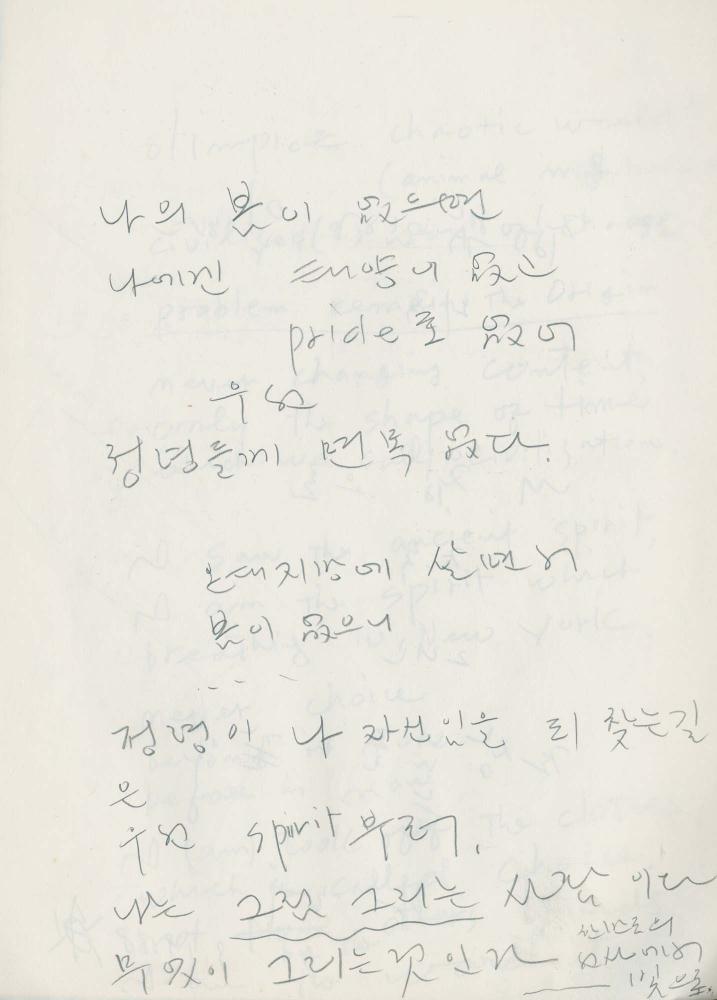 나의 봄이 없으면
나에겐 태양이 없고
pride로 없어
우선
정령들께 면목 없다.
온대지방에 살면서
봄이 없으니
...
정령이 나 자신임을 되찾는길
은
우선 spirit 부터.
나는 그림 그리는 사람 이다
무엇이 그리는것 인가
빛으로.